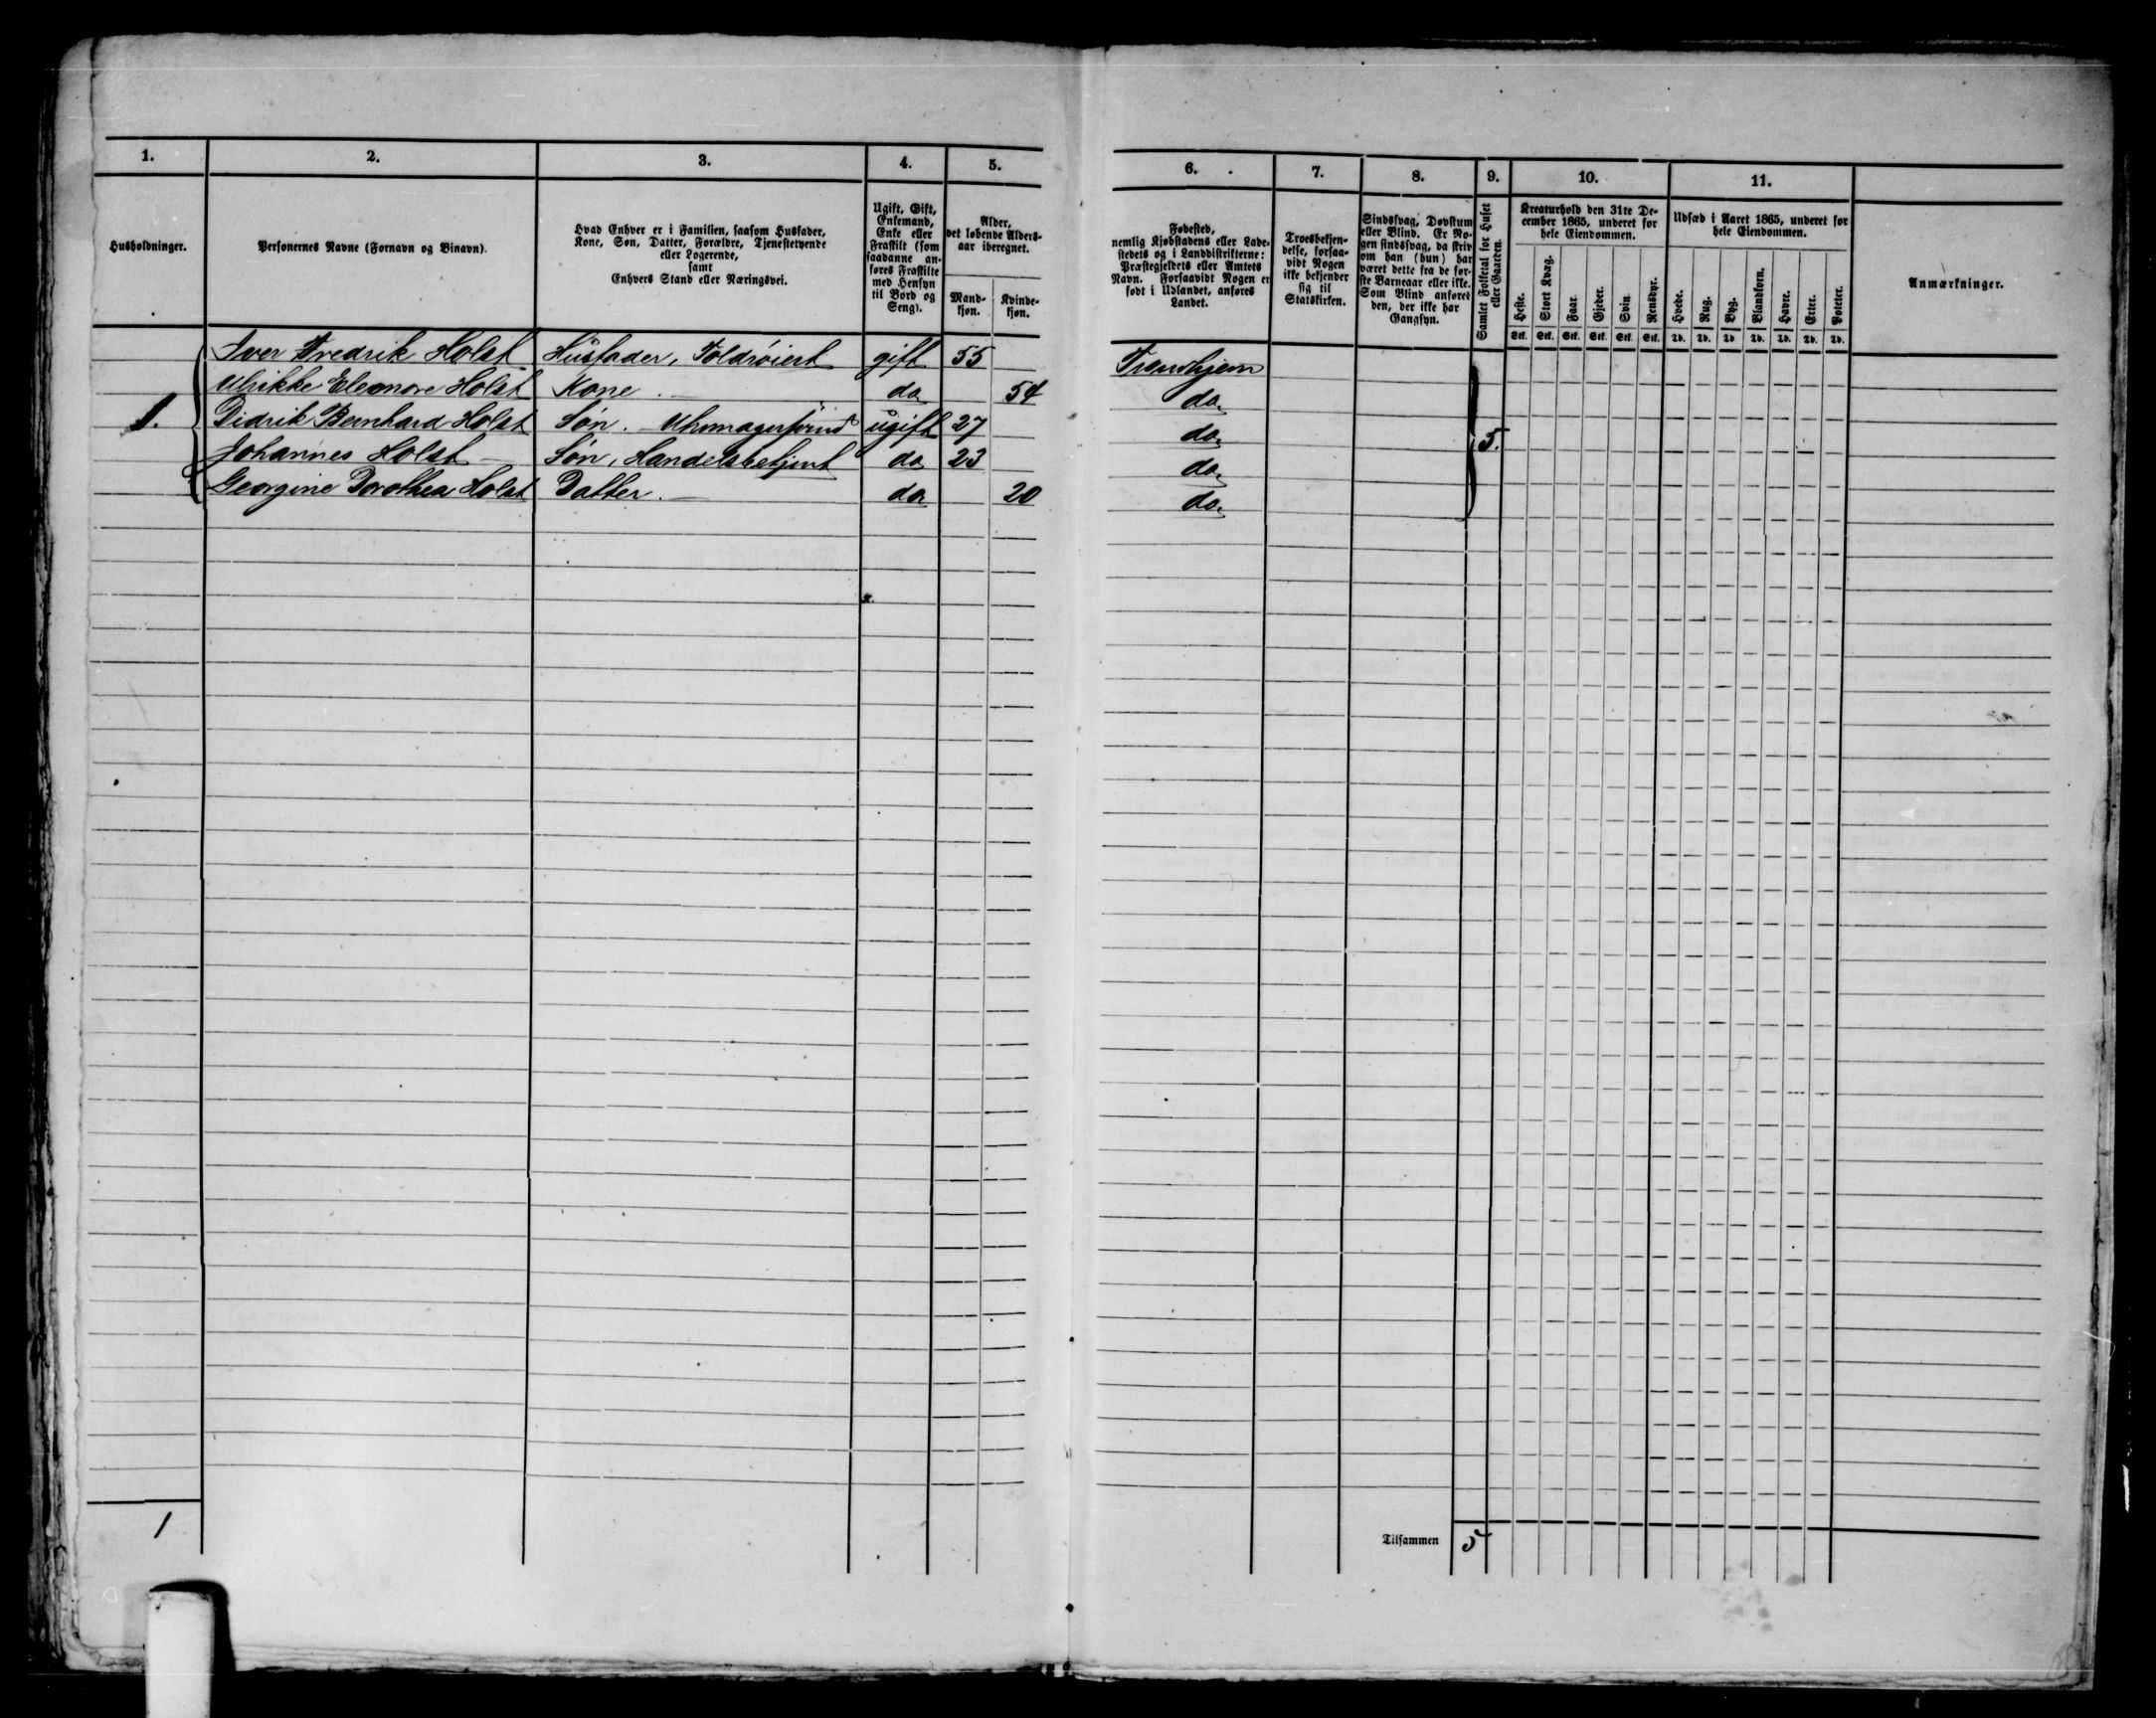 1. 2. 3. 4. 5.
Husholdninger.
Personernes Navne (Fornavn og Binavn).
Hvad Enhver er i Familien, saasom Husfader,
Kone, Søn, Datter, Forældre, Tjenestetyende
eller Logerende,
samt
Enhvers Stand eller Næringsvei.
Ugift, Gift,
Enkemand,
Enke eller
Fraskilt (som
saadanne an-
føres Fraskilte
med Hensyn
til Bord og
Seng).
Alder,
det løbende Alders-
aar iberegnet.
Mand-
kjøn.
Kvinde-
kjøn.
Iver Fredrik Holst Husfader, Toldrøiert gift 55
Ulrikke Eleonore Holst Kone do 54
1. Didrik Bernhard Holst Søn. Uhrmagersvend ugift 27
Johannes Holst Søn, Handelsbetjent do 23
Georgine Dorothea Holst Datter. do 20
1
6. 7. 8. 9. 10. 11.
Fødested,
nemlig Kjøbstadens eller Lade-
stedets og i Landdistrikterne:
Præstegjeldets eller Amtets
Navn. Forsaavidt Nogen er
født i Udlandet, anføres
Landet.
Troesbekjen-
delse, forsaa-
vidt Nogen
ikke bekjender
sig til
Statskirken.
Sindssvag, Døvstum
eller Blind. Er No-
gen sindssvag, da skriv
om han (hun) har
været dette fra de før-
ste Barneaar eller ikke.
Som Blind anføres
den, der ikke har
Gangsyn.
Samlet Folketal for Huset
eller Gaarden.
Kreaturhold den 31te De-
cember 1865, underet for
hele Eiendommen.
Heste.
Stort Kvæg.
Faar.
Gjeder.
Svin.
Rensdyr.
Stk. Stk. Stk. Stk. Stk. Stk.
Udsæd i Aaret 1865, underet for
hele Eiendommen.
Hvede.
Rug.
Byg.
Blandkorn.
Havre.
Erter.
Poteter.
Td. Td. Td Td. Td. Td. Td.
Anmærkninger.
Trondhjem
do.
do. 5.
do.
do.
Tilsammen 5